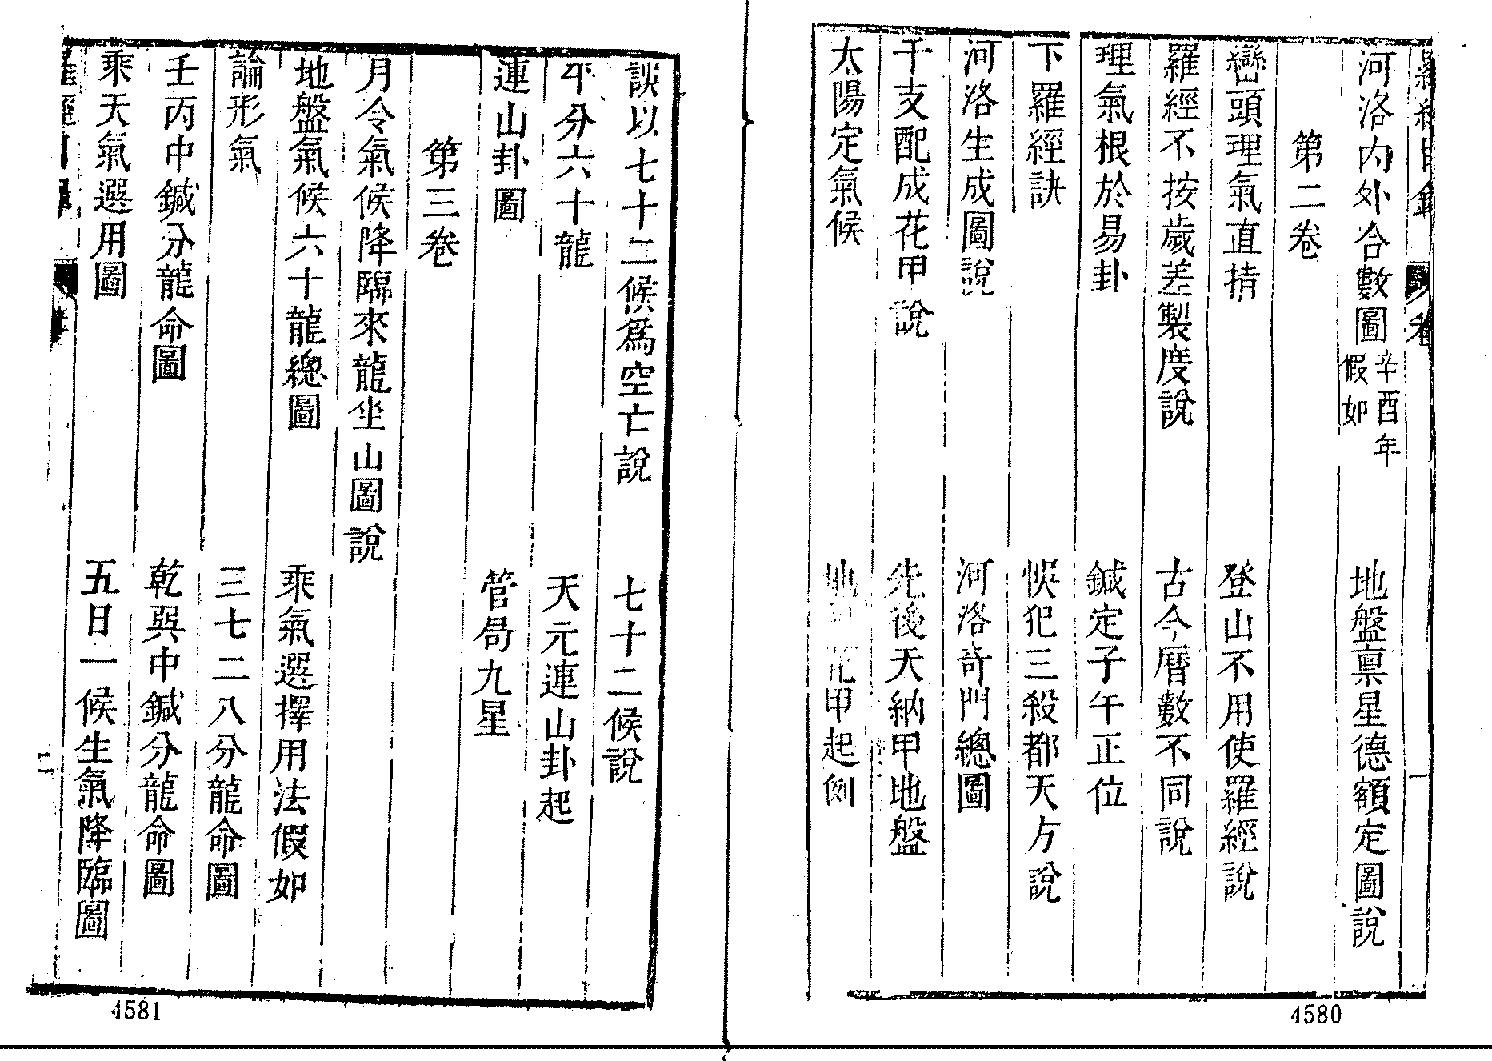 河洛內外合數圖 辛酉年 假如 地盤禀星德額定圖說
第二卷
巒頭理氣直指 登山不用使羅經說
羅經不按歲差製度說 古今曆數不同說
理氣根於易卦 鍼定子午正位
下羅經訣 悞犯三殺都天方說
河洛生成圖說 河洛奇門總圖
干支配成花甲說 先後天納甲地盤
太陽定氣候 地 花甲起例
4580
誤以七十二候爲空亡說 七十二候說
平分六十龍 天元連山卦起
連山卦圖 管局九星
第三卷
月令氣候降臨來龍坐山圖說
地盤氣候六十龍總圖 乘氣選擇用法假如
論形氣 三七二八分龍命圖
壬丙中鍼分龍命圖 乾巽中鍼分龍命圖
乘天氣選用圖 五日一候生氣降臨圖
二
4581